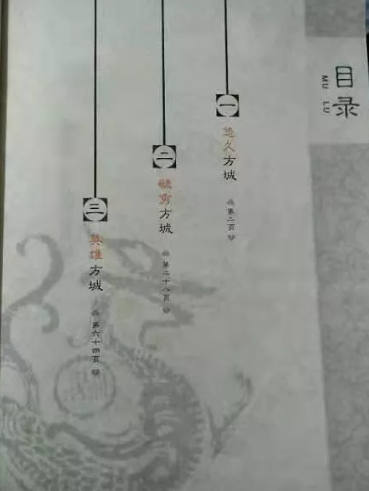 目录
MU LU
一
悠久方城
第二页
二
毓秀方城
第二十八页
三
英雄方城
第六十四页